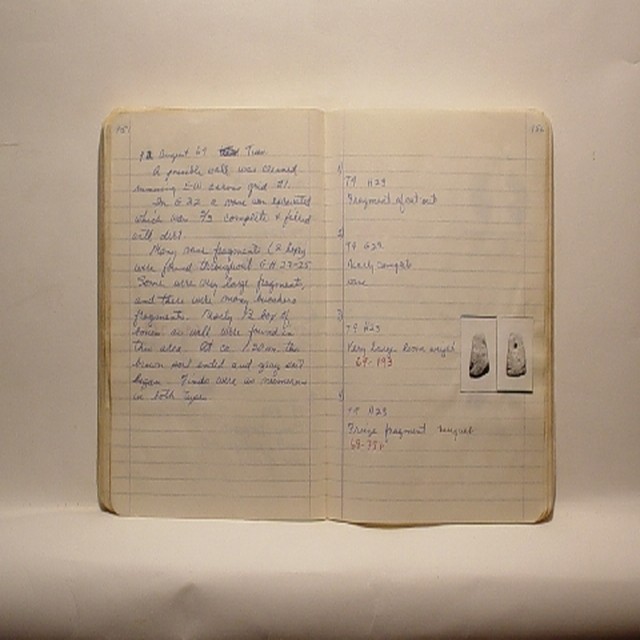 151
12 August 69 Tues.
A possible wall was cleaned
running E-W across grid 21.
In G 22 a vase was excavated
which was 2/3 complete & filled
with dirt.
Many vase fragments (2 boxes)
were found throughout G-H 23-25
Some were very large fragments,
and there were many
fragments. Nearly 1/2 box of
bones as well were found in
this area. At ca. 1.20 m. the
brown soil ended and gray soil
began. Finds were as numerous
in both types.
152
1)
T4 H23
Fragment of
2)
T4 G22
Nearly complete
vase
3)
T4 H23
Very large loom weight
69-193
4)
T4 H23
Frieze fragment